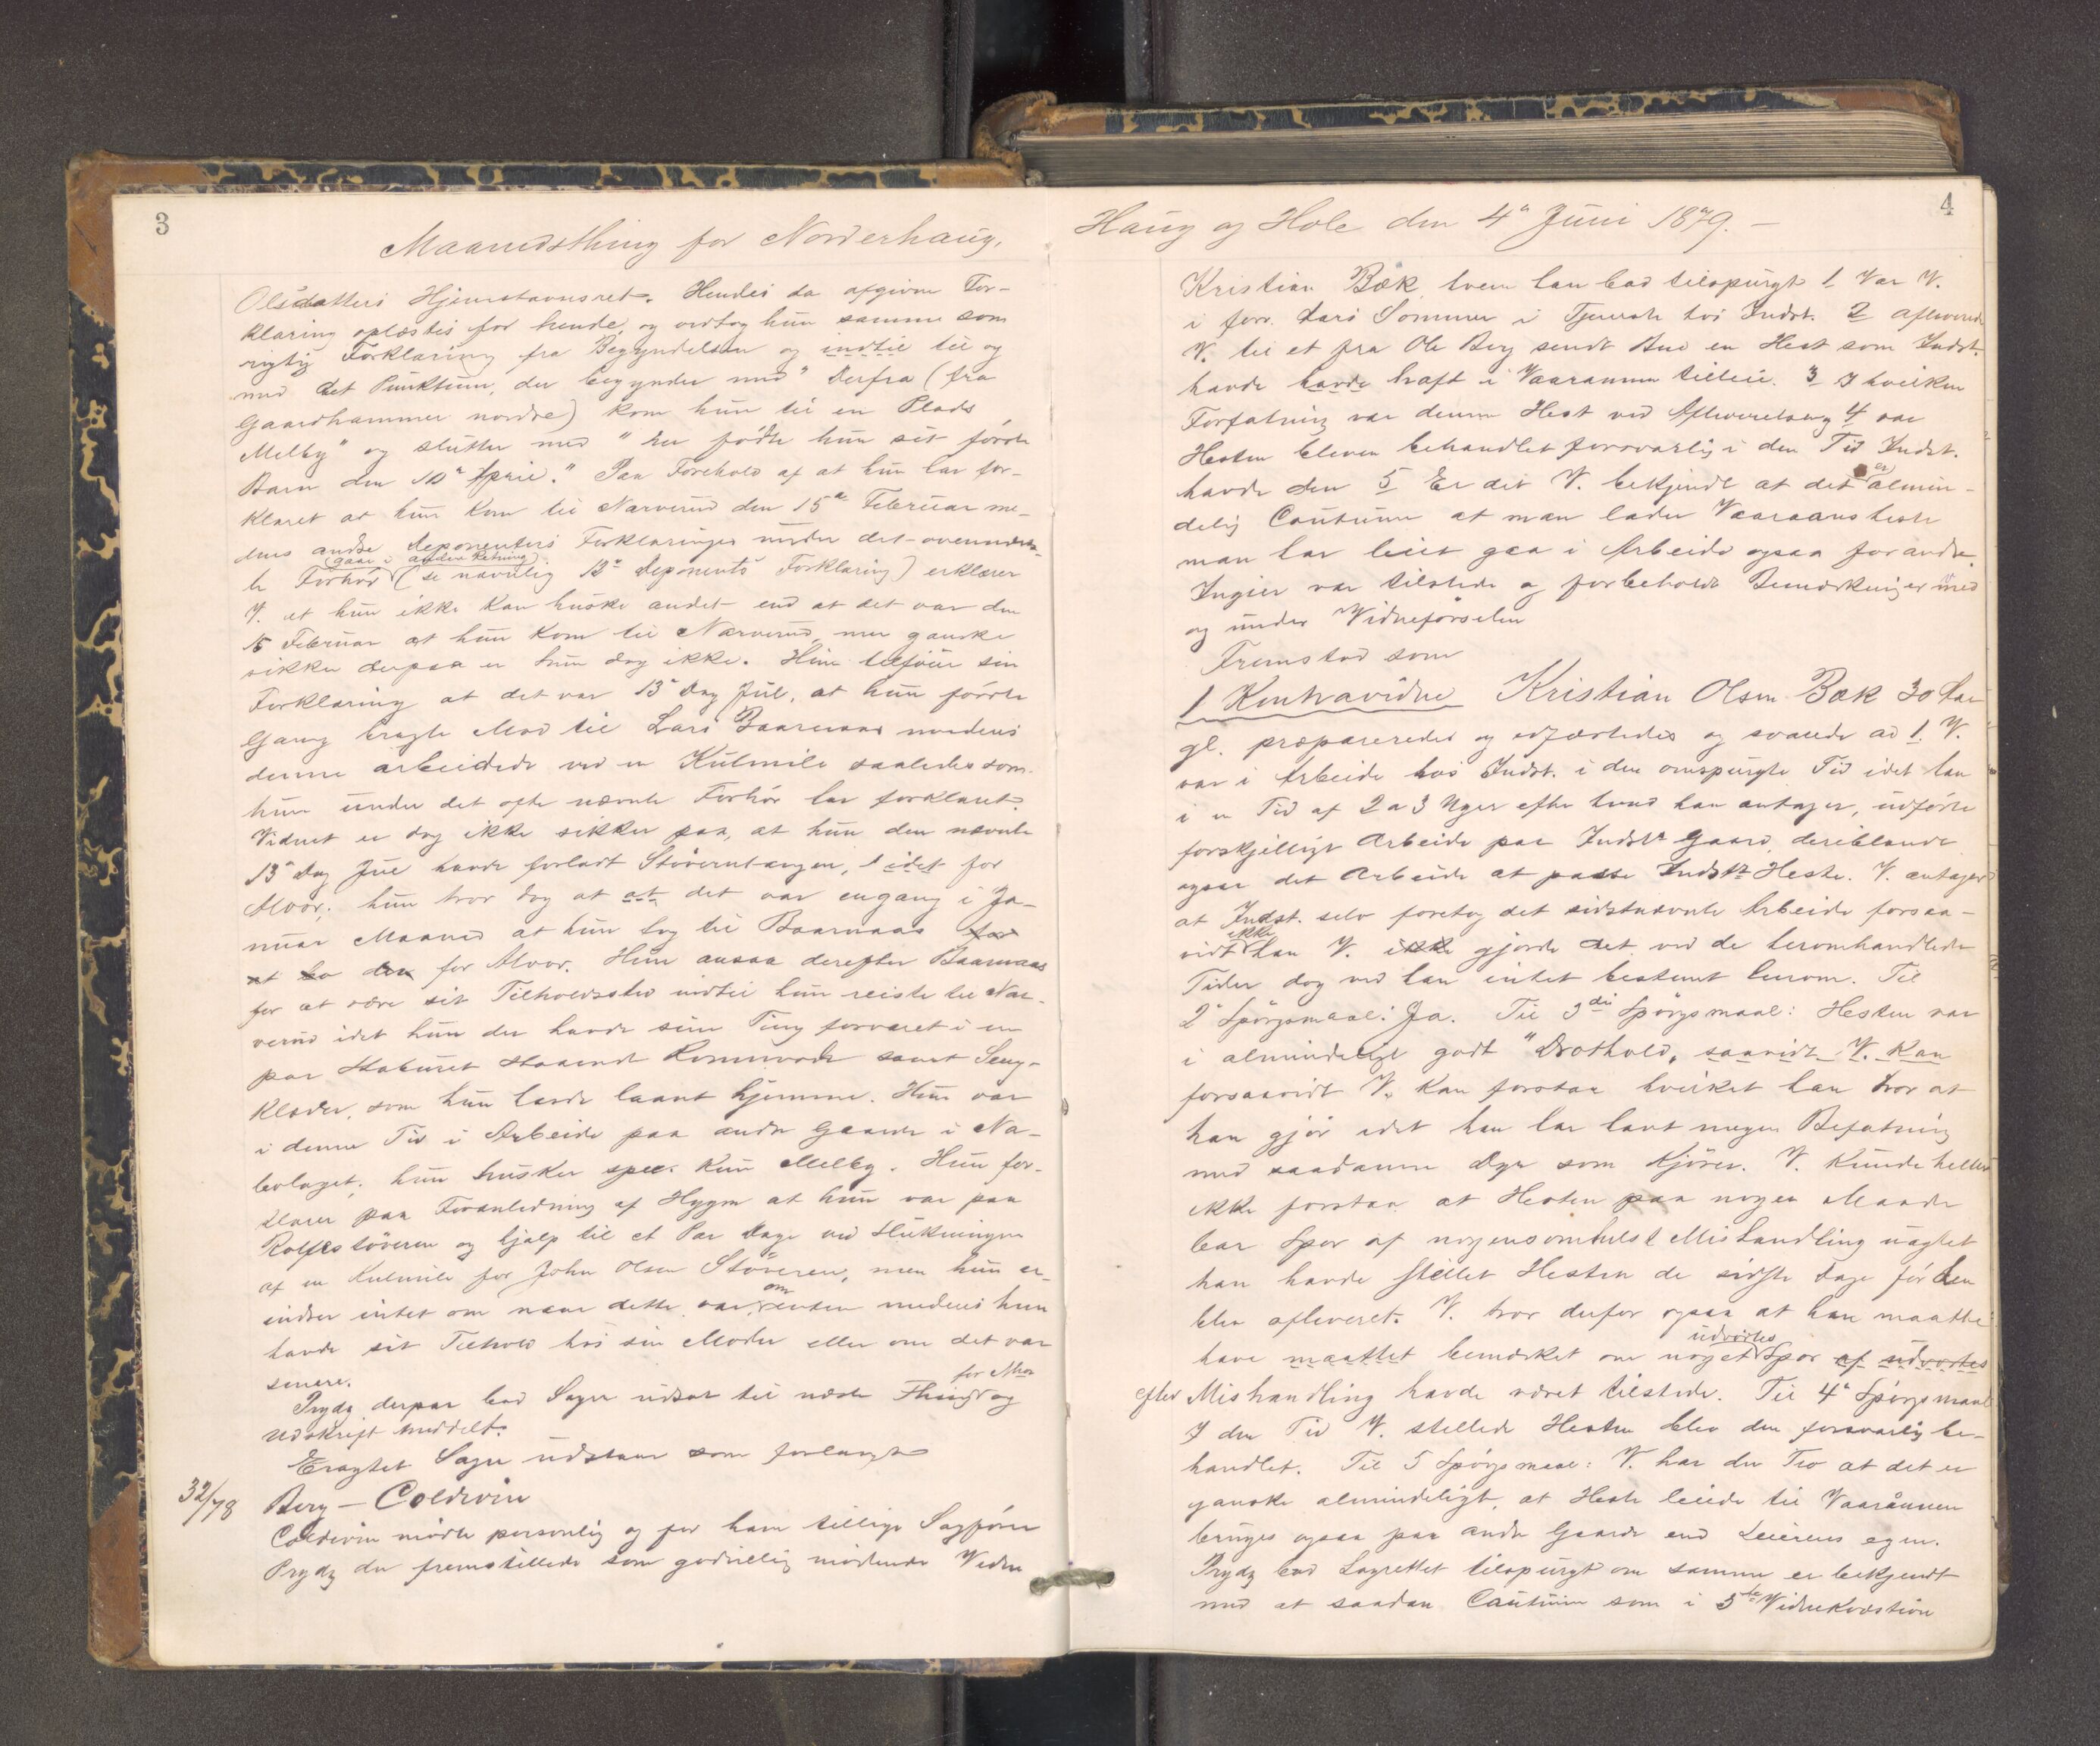 3
Maanedsthing for Norderhaug,
Olsdatters Hjemstavnsret. Hendes da afgivne For-
klaring oplæstes for hende, og vedtog hun samme som
rigtig Forklaring fra Begyndelsen og indtil til og
med det Punktum, der begynder med "Derfra (fra
Gaardhammer nordre) kom hun til en Plads
Melby" og slutter med "her fødte hun sit første
Barn den 10de April." Paa Forehold af at hun har for-
klaret at hun kom til Narverud den 15de Februar me-
dens andre Deponenters Forklaringer under det ovennævn-
gaar i anden Retning
te Forhør (se navnlig 12te Deponents Forklaring) erklærer
V. at hun ikke kan huske andet end at det var den
15 Februar at hun kom til Narverud, men ganske
sikker derpaa er hun dog ikke. Hun tilføier sin
Forklaring at det var 13de Dag Jul, at hun første
Gang bragte Mad til Lars Baarnaas medens
denne arbeidede ved en Kulmile saaledes som
hun under det ofte nævnte Forhør har forklaret.
Vidnet er dog ikke sikker paa, at hun den nævnte
13de Dag Jul havde forladt Støverntangen, idet for
Alvor; hun tror dog at at det var engang i Ja-
nuar Maaned at hun tog til Baarnaas for
at bo der for Alvor. Hun ansaa derefter Baarnaas
for at være sit Tilholdssted indtil hun reiste til Nar-
verud idet hun der havde sine Ting forvaret i en
paa Staburet staaende Kommode samt Seng-
klæder, som hun havde laant hjemme. Hun var
i denne Tid i Arbeide paa andre Gaarde i Na-
bolaget; hun husker spec. kun Melby. Hun for-
klarer paa Foranledning af Hygen at hun var paa
Rolfsstøveren og hjalp til et Par Dage ved Slukningen
af en Kulmile for John Olsen Støveren, men hun er-
om
indrer intet om naar dette var, enten medens hun
havde sit Tilhold hos sin Moder eller om det var
senere.
for Mor
Prydz derpaa bad Sagen udsat til næste Thing og
Udskrift meddelt.
Eragtet Sagen udstaar som forlangt
32/78 Berg – Coldevin
Coldevin mødte personlig og for ham tillige Sagfører
Prydz der fremstillede som godvillig mødende Vidne
4
Haug og Hole den 4de Juni 1879. –
Kristian Bæk hvem han bad tilspurgt 1 Var V.
i forr. Aars Sommer i Tjeneste hos Indst. 2 Afleverede
V. til et fra Ole Berg sendt Bud en Hest som Indst.
havde havde havt i Vaaraannen tilleie. 3 I hvilken
Forfatning var denne Hest ved Afleveringen 4 var
Hesten bleven behandlet forsvarlig i den Tid Indst.
er
havde den 5 Er det V. bekjendt at det almin-
delig Coutume at man lader Vaaraanshesten
man har leiet gaa i Arbeide ogsaa for andre.
Ingier var tilstede og forbeholdt Bemærkninger med
og under Vidneførselen
Fremstod som
1 Kontravidne Kristian Olsen Bæk 30 Aar
gl. præpareredes og edfæstedes og svarede ad 1. V.
var i Arbeide hos Indst. i den omspurgte Tid idet han
i en Tid af 2 a 3 Uger efter hvad han antager, udførte
forskjelligt Arbeide paa Indsts Gaard, deriblandt
ogsaa det Arbeide at passe Indsts Heste. V. antager
at Indst. selv foretog det sidstnævnte Arbeide forsaa-
ikke
vidt han V. ikke gjorde det ved de heromhandlede
Tider dog ved han intet bestemt herom. Til
2det Spørgsmaal: Ja. Til 3die Spørgsmaal: Hesten var
i almindeligt godt "Drothold, saavidt V. kan
forsaavidt V. kan forstaa hvilket han tror at
han gjør idet han har havt megen Befatning
med saadanne Dyr som Kjører. V. kunde heller
ikke forstaa at Hesten paa nogen Maade
bar Spor af nogensomhelst Mishandling uagtet
han havde stellet Hesten de sidste Dage før den
blev afleveret. V. tror derfor ogsaa at han maatte
udvortes
have maattet bemærket om noget Spor af udvortes
efter Mishandling havde været tilstede. Til 4de Spørgsmaal
I den Tid V. stellede Hesten blev den forsvarlig be-
handlet. Til 5 Spørgsmaal: V. har den Tro at det er
ganske almindeligt, at Heste leiede til Vaarånnen
bruges ogsaa paa andre Gaarde end Leierens egen.
Prydz bad Lagrettet tilspurgt om samme er bekjendt
med at saadan Coutume som i 5te Vidnekvæstion